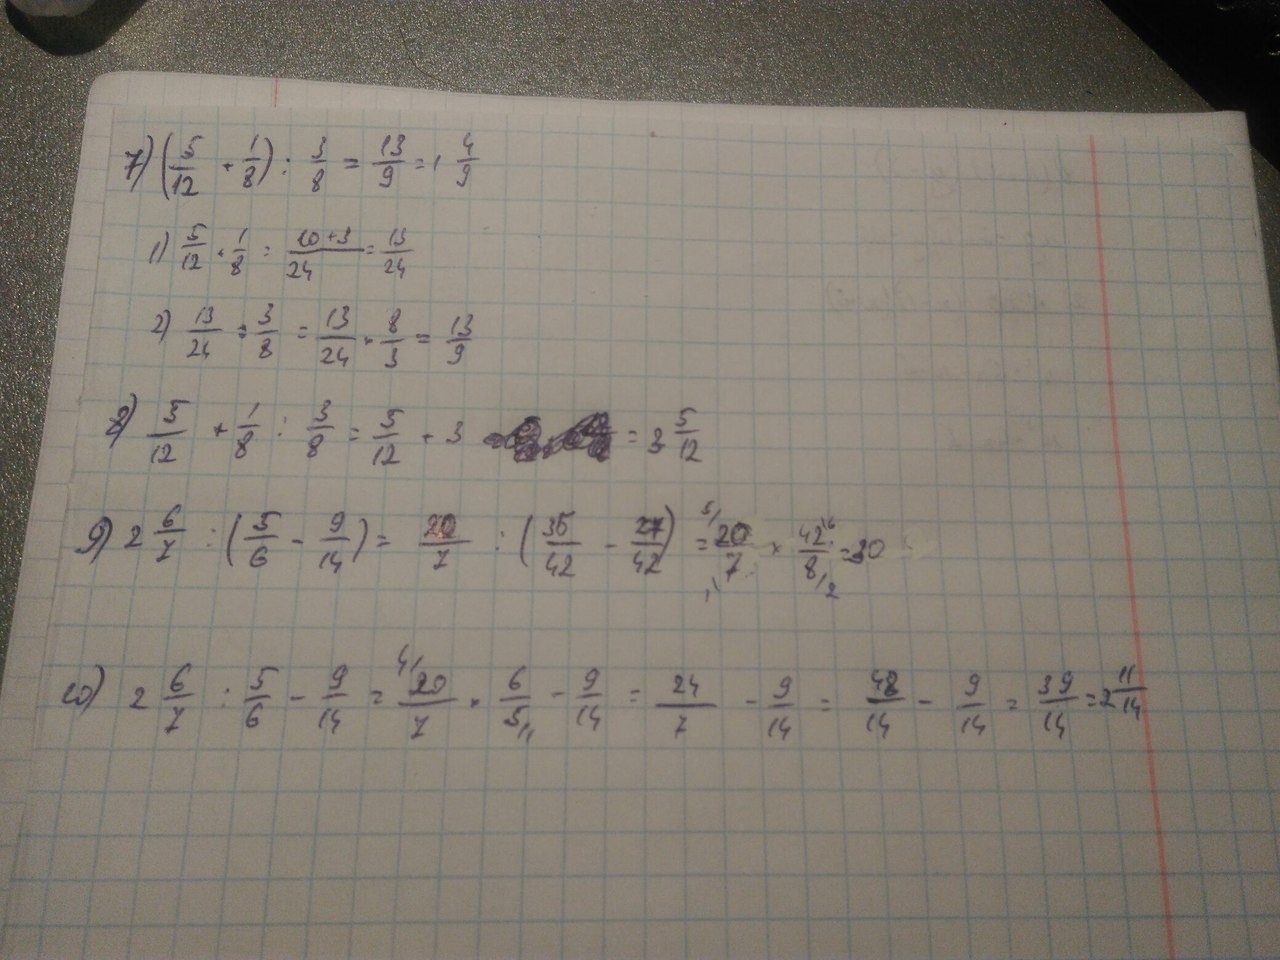 7) (5/12 + 1/8) : 3/8 = 13/9 = 1 4/9
1) 5/12 + 1/8 = 10+3/24 = 13/24
2) 13/24 : 3/8 = 13/24 · 8/3 = 13/9
8) 5/12 + 1/8 : 3/8 = 5/12 + 3 = 3 5/12
9) 2 6/7 : (5/6 - 9/14) = 20/7 : (35/42 - 27/42) = 20/7 × 42/8 = 30
10) 2 6/7 : 5/6 - 9/14 = 20/7 · 6/5 - 9/14 = 24/7 - 9/14 = 48/14 - 9/14 = 39/14 = 2 11/14